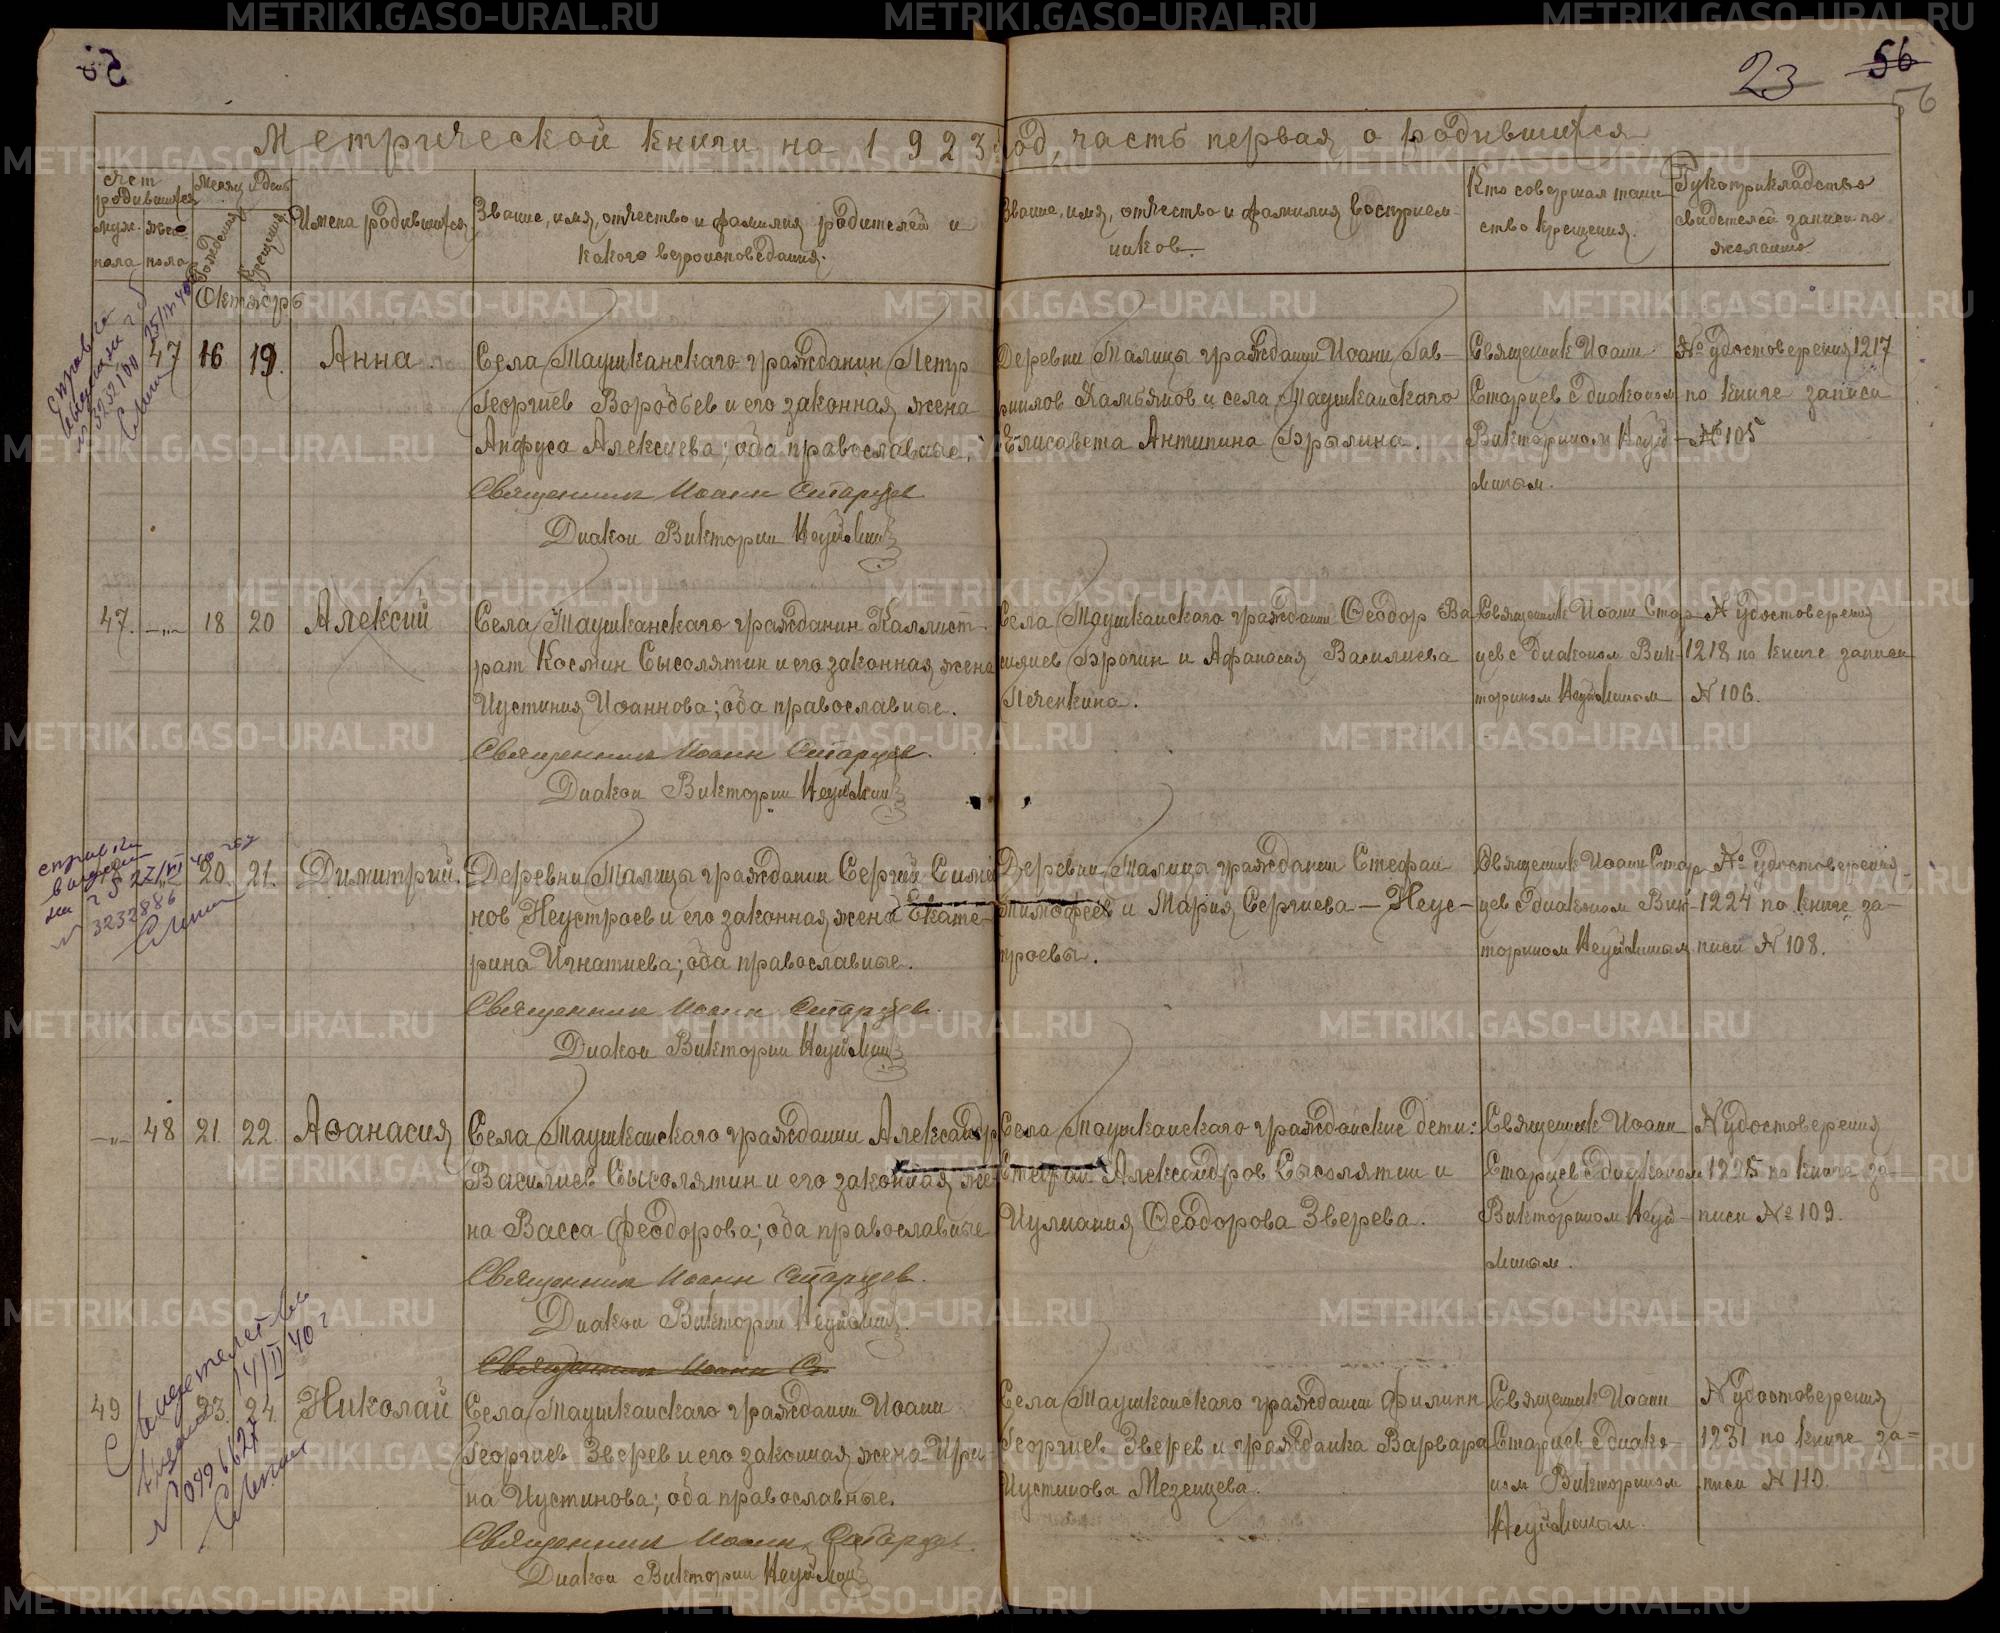 23 56
56
Метрической книги на 1923 год, часть первая о родившихся
Счет родившихся
муж. пола
жен. пола
Месяц и день
рождения
крещения
Имена родившихся
Звание, имя, отчество и фамилия родителей и
какого вероисповедания.
Звание, имя, отчество и фамилия восприем-
ников.
Кто совершал таин-
ство крещения.
Рукоприкладство
свидетелей записи по
желанию
Октябрь
47 16 19. Анна.
Села Таушканскаго гражданин Петр
Георгиев Воробьев и его законная жена
Анфуса Алексиева; оба православные.
Священник Иоанн Старцев
Диакон Викторин Неуймин
Деревни Талицы гражданин Иоанн Гав-
риилов Халтянов и села Таушканскаго
Елисавета Антипина Брылина.
Священник Иоанн
Старцев с диаконом
Викторином Неуй-
миным.
№ удостоверения 1217
по книге записи
№ 105
47. -"- 18 20 Алексий
Села Таушканскаго гражданин Каллист-
рат Космин Сысолятин и его законная жена
Иустиния Иоаннова; оба православные.
Священник Иоанн Старцев.
Диакон Викторин Неуймин
Села Таушканскаго гражданин Феодор Ва-
силиев Брагин и Афанасия Василиева
Печенкина.
Священник Иоанн Стар-
цев с диаконом Вик-
торином Неуйминым
№ удостоверения
1218 по книге записи
№ 106.
справка
выдана
3232886
20. 21. Димитрий.
Деревни Талицы гражданин Сергий Симе-
нов Неустроев и его законная жена Екате-
рина Игнатиева; оба православные.
Священник Иоанн Старцев.
Диакон Викторин Неуймин
Деревни Талицы гражданин Стефан
Тимофеев и Мария Сергиева - Неус-
троевы.
Священник Иоанн Стар-
цев с диаконом Вик-
торином Неуйминым
№ удостоверения
1224 по книге за-
писи № 108.
-"- 48 21. 22. Афанасия
Села Таушканскаго гражданин Александр
Василиев Сысолятин и его законная же-
на Васса Феодорова; оба православные
Священник Иоанн Старцев.
Диакон Викторин Неуймин
Священник Иоанн С
Села Таушканскаго гражданские дети:
Стефан Александров Сысолятин и
Иулиания Феодорова Зверева.
Священник Иоанн
Старцев с диаконом
Викторином Неуй-
миным.
№ удостоверения
1225 по книге за-
писи № 109.
14/II 40 г
49 23. 24. Николай
Села Таушканскаго гражданин Иоанн
Георгиев Зверев и его законная жена Ири-
на Иустинова; оба православные.
Священник Иоанн Старцев.
Диакон Викторин Неуймин
Села Таушканскаго гражданин Филипп
Георгиев Зверев и гражданка Варвара
Иустинова Мезенцева.
Священник Иоанн
Старцев с диако-
ном Викторином
Неуйминым.
№ удостоверения
1231 по книге за-
писи № 110.
METRIKI.GASO-URAL.RU